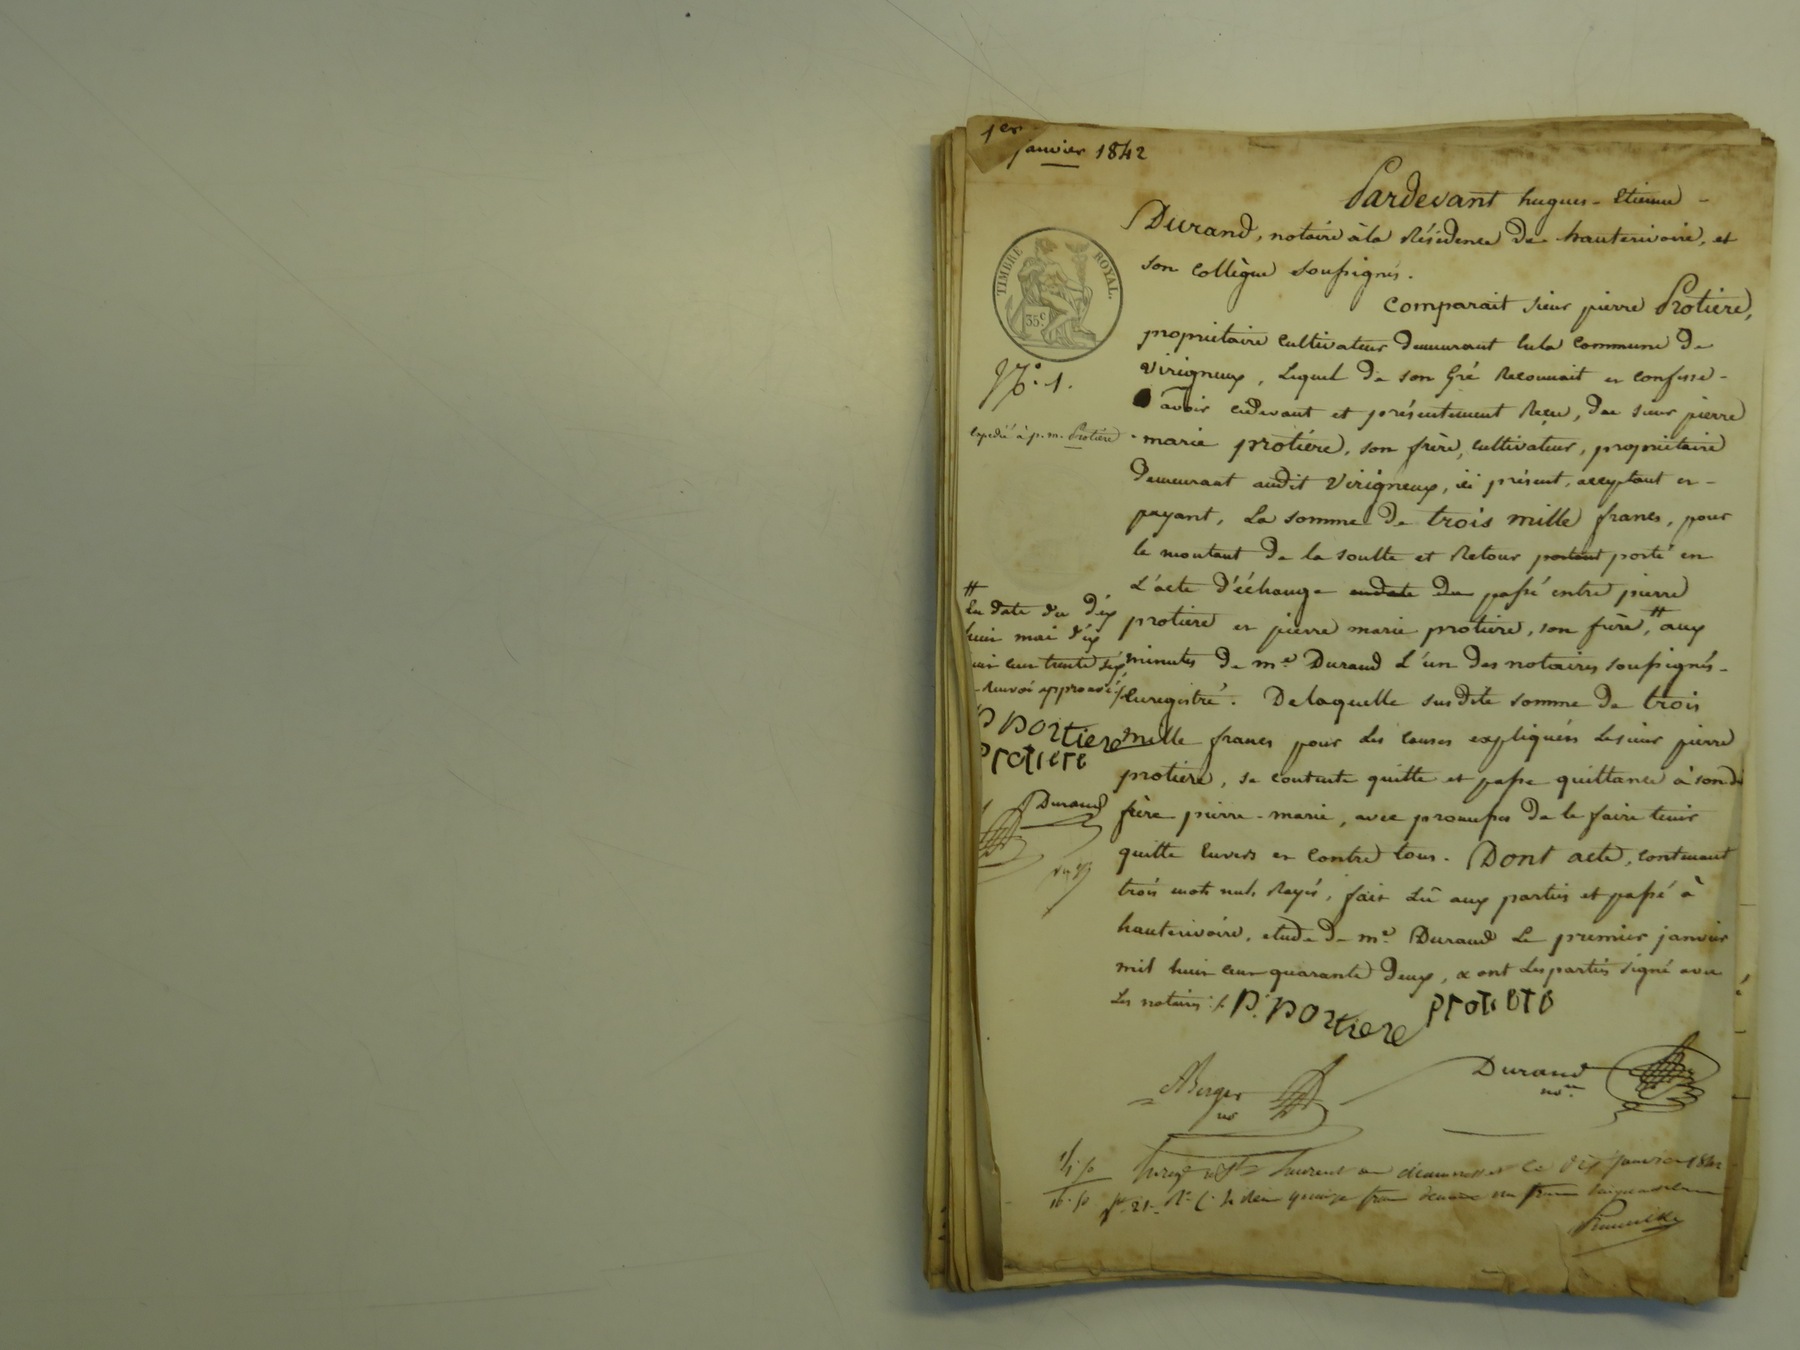 1er
janvier 1842
Pardevant hugues-Etienne
Durand, notaire à la Résidence de hauterivoire, et
son collègue soussignés.
TIMBRE ROYAL.
35c.
Comparait sieur pierre Protiere,
proprietaire cultivateur demeurant en la commune de
Virigneux, Lequel de son Gré Reconnait et confesse
N.º 1.
avoir cidevant et présentement Reçu, du sieur pierre
Expédié à p. m. Protière
marie protiére, son frère, cultivateur, proprietaire
demeurant audit Virigneux, ici présent, acceptant et
payant, La somme de trois mille francs, pour
le montant de la soulte et Retour portant porté en
L'acte d'échange endate du passé entre pierre
protiere et pierre marie protiere, son frère, # aux
#
En date du dix
huit mai dix
huit cent trente six
Renvoi approuvé
minutes de me. Durand L'un des notaires soussignés
Enregistré. De laquelle susdite somme de trois
P portiere
Protiere
Durand
mille francs pour les causes expliquées Le sieur pierre
protiere, se contente quitte et passe quittance à son dt
frère pierre-marie, avec promesse de le faire tenir
quitte Envers et contre tous. Dont acte, contenant
trois mots nuls Rayés, fait Lû aux parties et passé à
hauterivoire, etude de me. Durand Le premier janvier
mil huit cent quarante deux, & ont Les parties signé avec
Les notaires ./. P. portiere protiere
Berger
nre
Durand
nre.
Enregé à St Laurent de chamousset le dix janvier 1842
fo. 21. Ro. C. 4 reçu quinze francs décime un franc cinquante centimes